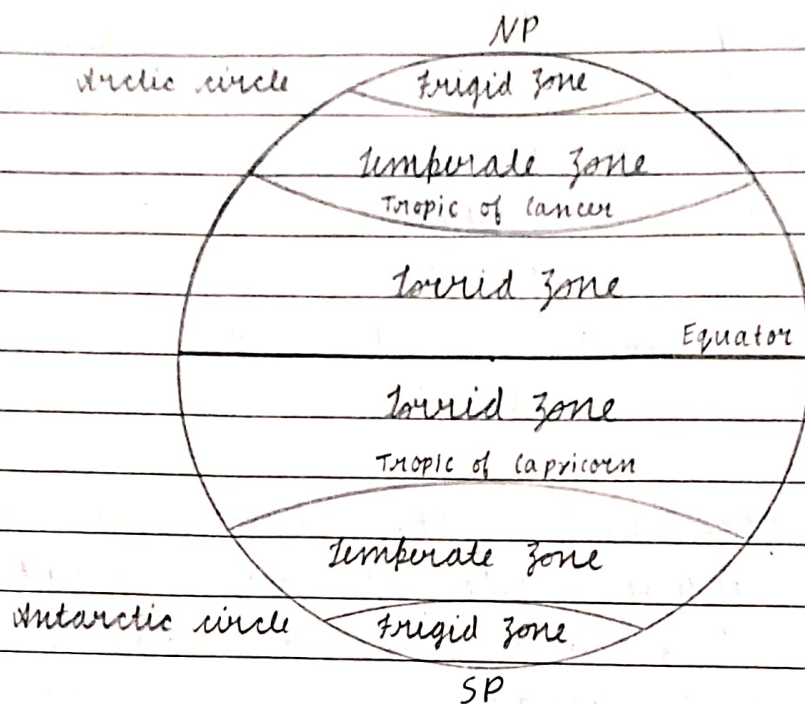 NP
Arctic circle Frigid Zone
Temperate Zone
Tropic of Cancer
Torrid Zone
Equator
Torrid Zone
Tropic of Capricorn
Temperate Zone
Antarctic circle Frigid Zone
SP